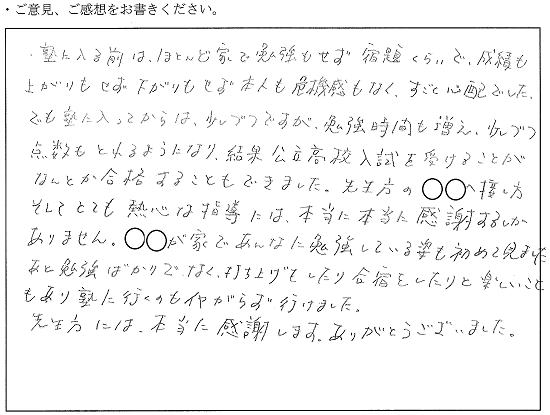 ・ご意見、ご感想をお書きください。
・塾に入る前は、ほとんど家で勉強もせず宿題くらいで、成績も
上がりもせず下がりもせず本人も危機感もなく、すごく心配でした。
でも塾に入ってからは、少しづつですが、勉強時間も増え、少しづつ
点数もとれるようになり、結果公立高校入試を受けることが
なんとか合格することもできました。先生方の○○へ接し方
そしてとても熱心な指導には、本当に本当に感謝するしか
ありません。○○が家であんなに勉強している姿も初めて見ました
あと勉強ばかりでなく、打ち上げをしたり合宿をしたりと楽しいこと
もあり塾に行くのもイヤがらず行けました。
先生方には、本当に感謝します。ありがとうございました。